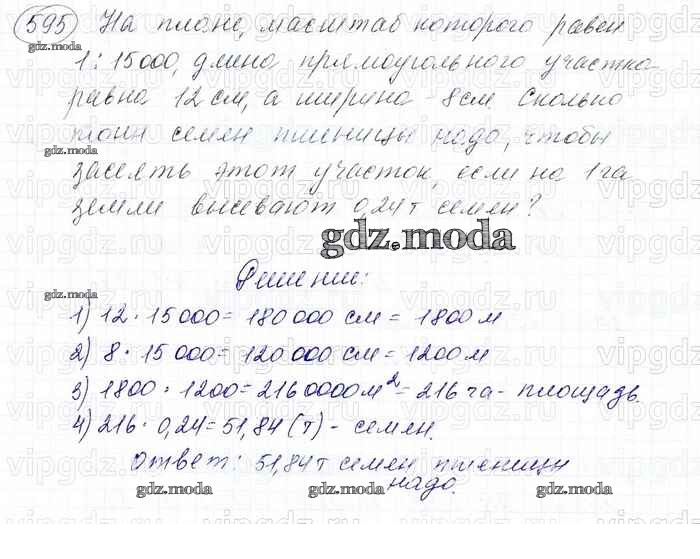 595 На плане, масштаб которого равен
1:15000, длина прямоугольного участка
равна 12 см, а ширина - 8 см. Сколько
тонн семен пшеницы надо, чтобы
засеять этот участок, если на 1 га
земли высевают 0,24 т семен?
gdz.moda
Решение:
1) 12 · 15 000 = 180 000 см = 1800 м
2) 8 · 15 000 = 120 000 см = 1200 м
3) 1800 · 1200 = 2160000 м² = 216 га - площадь.
4) 216 · 0,24 = 51,84 (т) - семен.
Ответ: 51,84 т семен пшеницы
надо.
gdz.moda gdz.moda gdz.moda